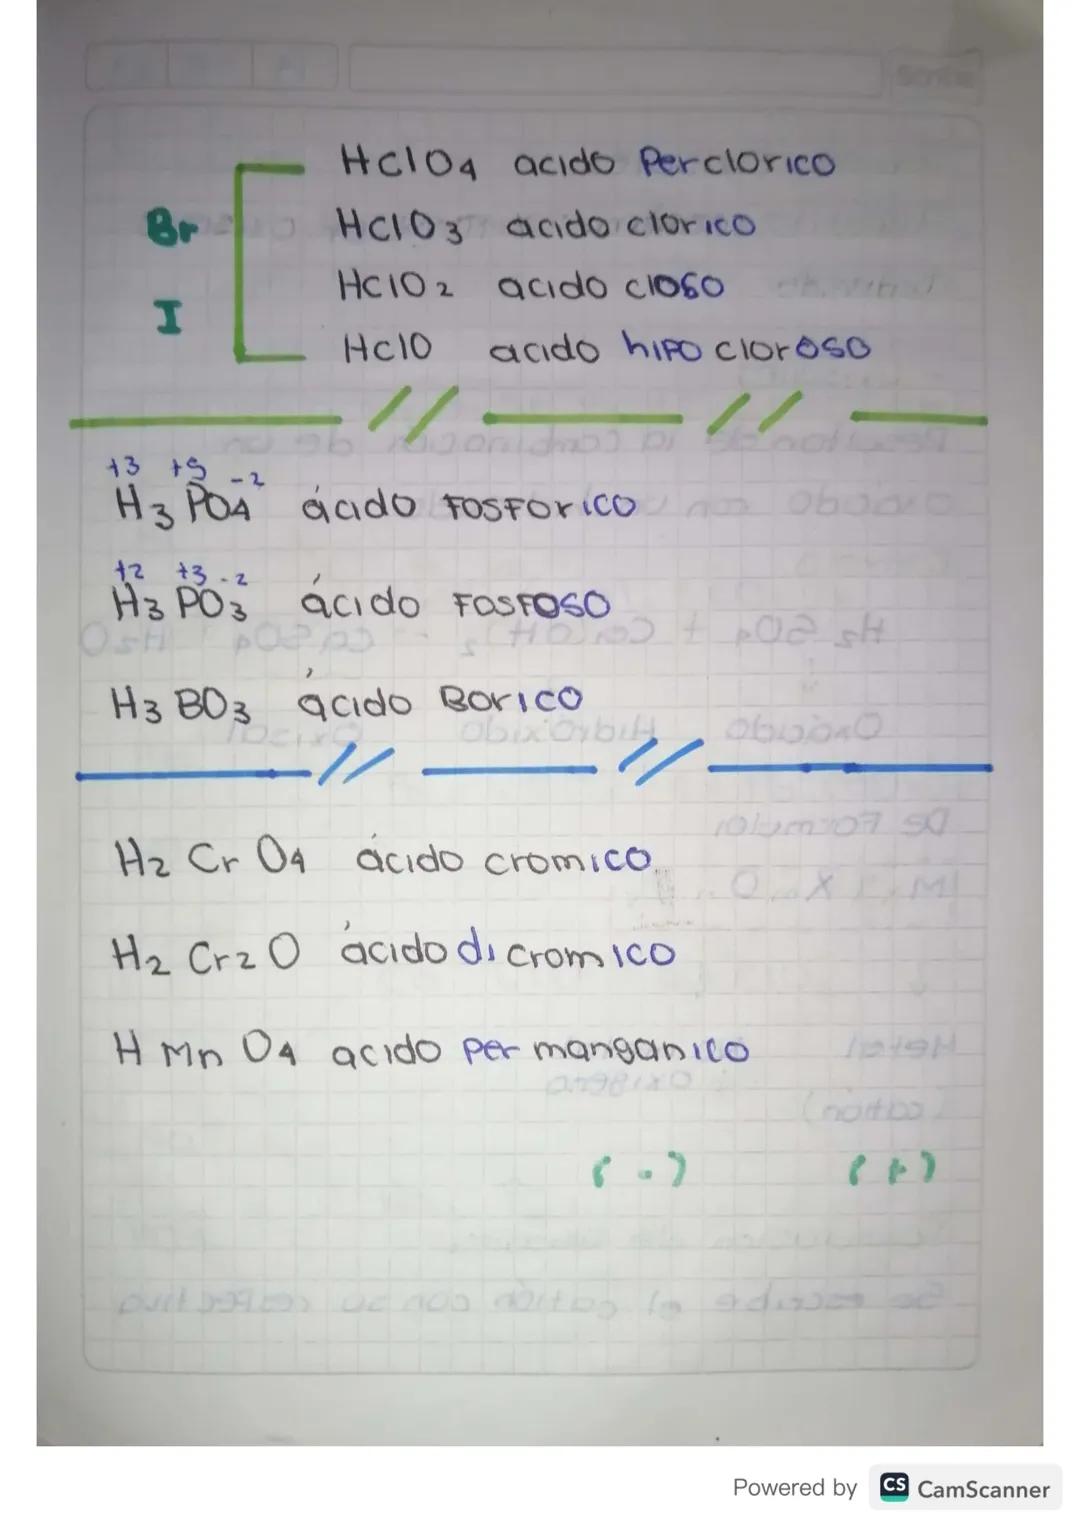 HClO4 acido Perclorico
Br
HClO3 acido clorico
HClO2 acido closo
I
HClO acido hipo cloroso
+3 +5 -2
H3 PO4 ácido FOSFORICO
+2 +3 -2
H3 PO3 ácido FOSFOSO
H3 BO3 ácido Borico
H2 Cr O4 ácido cromico
H2 Cr2 O ácido di cromico
H Mn O4 acido per manganico
(-) (+)
Powered by CS CamScanner